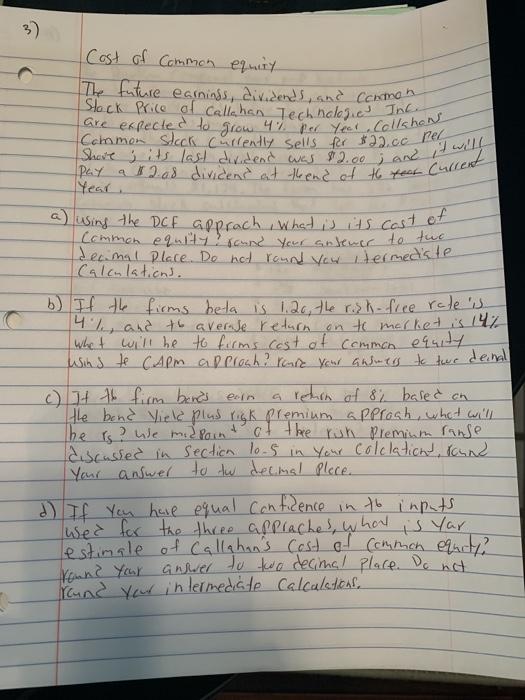 3)
Cost of Common equity
The future earnings, dividends, and common
Stock Price of Callahan Technologies Inc.
are expected to grow 4% per year. Callahans
Common Stock Currently sells for $22.00 per
Share; its last dividend was $2.00; and it will
Pay a $2.08 dividend at the end of the Current
Year.
a) using the DCF apprach, what is its cost of
Common equity? round your answer to two
decimal place. Do not round your itermediate
Calculations.
b) If the firms beta is 1.20, the risk-free rate is
4%, and the average return on the market is 14%
what will be the firms cost of common equity
using the CAPM approach? round your answers to two decimal
c) If the firm bonds earn a return of 8% based on
the bond yield plus risk premium approah, what will
be rs? use midpoint of the risk premium range
discussed in Section 10-5 in your calculations, round
Your answer to two decimal place.
d) If You have equal Confidence in the inputs
used for the three appraches, what is your
estimate of Callahan's Cost of common equity?
round Your answer to two decimal place. Do not
round your intermediate Calculations.